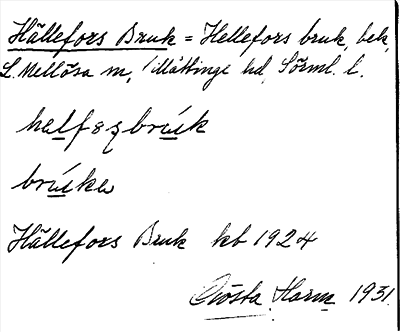 Hällefors Bruk = Hellefors bruk, bek,
L. Mellösa sn, Villåttinge hd, Sörml. l.
hälfəʂ brúk
brúkə
Hällefors Bruk kb 1924
Gösta Harm 1931.